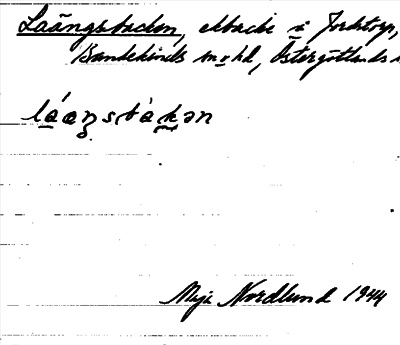 Laängsbacken, i Jordstorp,
Bankekinds sn o hd, Östergötlands
láaŋsbàkən
Maja Nordlund 1944